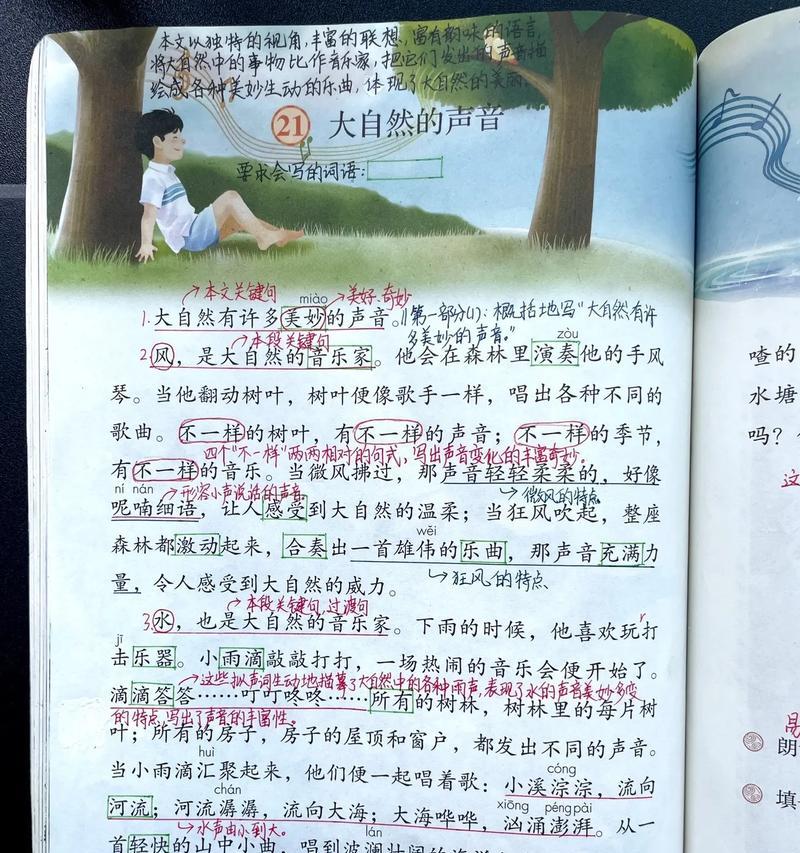 本文以独特的视角,丰富的联想,富有韵味的语言,
将大自然中的事物比作音乐家,把它们发出的声音描
绘成各种美妙生动的乐曲,体现了大自然的美丽。
21 大自然的声音
要求会写的词语:
本文关键句
miào
美好、奇妙
1.大自然有许多美妙的声音。
第一部分(1):概括地写“大自然有许
多美妙的声音。”
本段关键句
zòu
2.风,是大自然的音乐家。他会在森林里演奏他的手风
琴。当他翻动树叶,树叶便像歌手一样,唱出各种不同的
歌曲。不一样的树叶,有不一样的声音;不一样的季节,
四个“不一样”两两相对的句式,写出声音变化的丰富奇妙。
有不一样的音乐。当微风拂过,那声音轻轻柔柔的,好像
ní nán
形容小声说话的声音
微风的特点
呢喃细语,让人感受到大自然的温柔;当狂风吹起,整座
wěi
森林都激动起来,合奏出一首雄伟的乐曲,那声音充满力
量,令人感受到大自然的威力。
狂风的特点
本段关键句,过渡句
3.水,也是大自然的音乐家。下雨的时候,他喜欢玩打
jī
击乐器。小雨滴敲敲打打,一场热闹的音乐会便开始了。
这些拟声词生动地描摹了大自然中的各种雨声,表现了水的声音美妙多变
滴滴答答……叮叮咚咚……所有的树林,树林里的每片树
的特点,写出了声音的丰富性。
叶;所有的房子,房子的屋顶和窗户,都发出不同的声音。
huì
cóng
当小雨滴汇聚起来,他们便一起唱着歌:小溪淙淙,流向
chán
xiōng péng pài
河流;河流潺潺,流向大海;大海哗哗,汹涌澎湃。从一
水声由小到大。
lán
首轻快的山中小曲,唱到波澜壮阔的海洋
喳的
水塘
吗?
这
朗
填